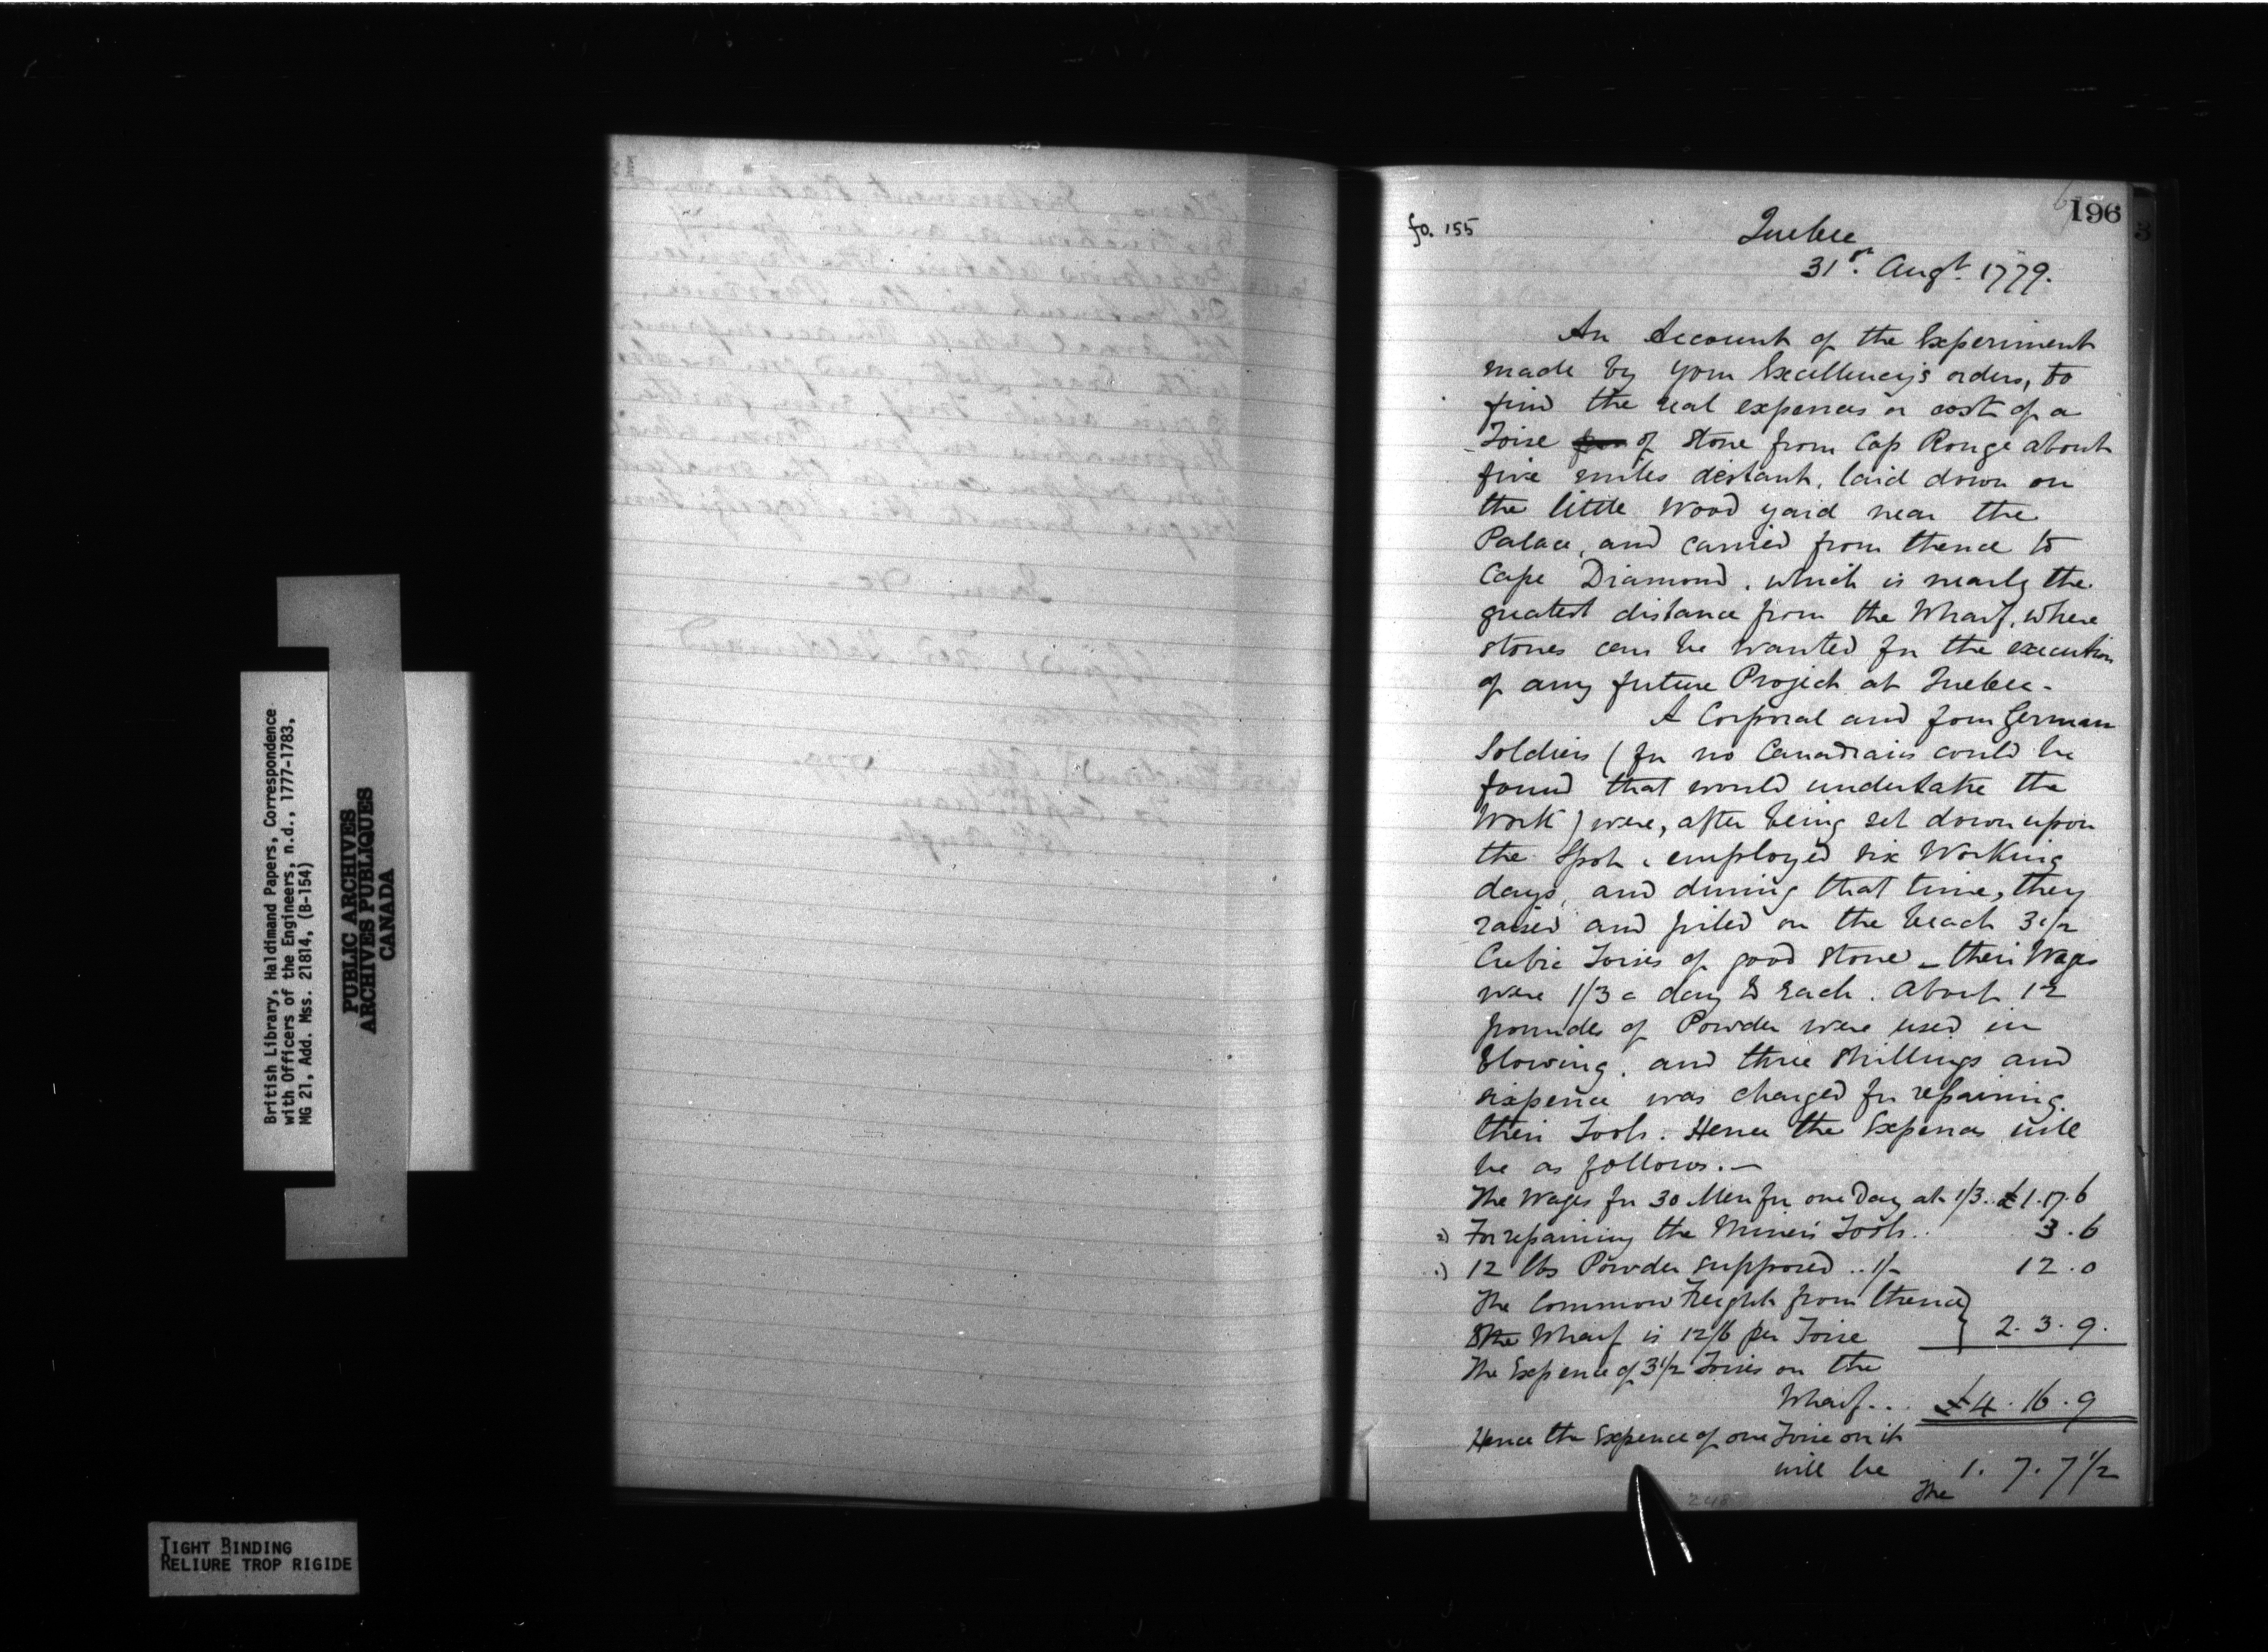 196
fo. 155
Quebec
31st. Augt. 1779.
An Account of the Experiment
made by your Excellency's orders, to
find the real expences or cost of a
Toise of stone from Cap Rouge about
five miles distant, laid down on
the little Wood yard near the
Palace, and carried from thence to
Cape Diamond, which is nearly the
greatest distance from the Wharf, where
stones can be wanted for the execution
of any future Project at Quebec.
A Corporal and four German
Soldiers (for no Canadians could be
found that would undertake the
Work) were, after being set down upon
the Spot, employed six Working
days, and during that time, they
raised and piled on the beach 3 1/2
Cubic Toises of good stone - their Wages
were 1/3 a day to each. About 12
pounds of Powder were used in
blowing, and three Shillings and
sixpence was charged for repairing
their Tools. Hence the Expences will
be as follows. -
The Wages for 30 Men for one Day at 1/3.. £1.17.6
For repairing the Miner's Tools.. 3.6
12 lbs Powder supposed .. 1/- 12.0
The Common Freight from thence }
Wharf is 12/6 per Toise } 2.3.9.
The Expence of 3 1/2 Toises on the
Wharf... £4.16.9
Hence the Expence of one Toise on it
will be 1.7.7 1/2
The
248
British Library, Haldimand Papers, Correspondence
with Officers of the Engineers, n.d., 1777-1783,
MG 21, Add. Mss. 21814, (B-154)
PUBLIC ARCHIVES
ARCHIVES PUBLIQUES
CANADA
TIGHT BINDING
RELIURE TROP RIGIDE